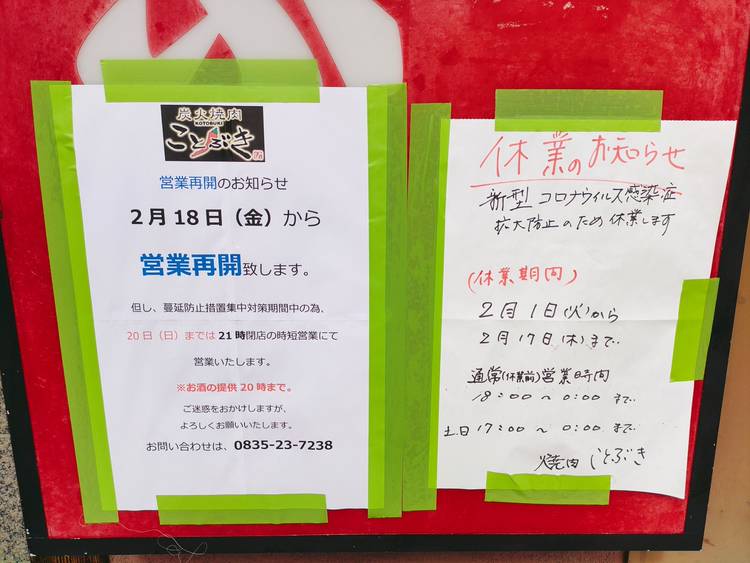 炭火焼肉
KOTOBUKI
ことぶき
営業再開のお知らせ
2月18日（金）から
営業再開致します。
但し、蔓延防止措置集中対策期間中の為、
20日（日）までは21時閉店の時短営業にて
営業いたします。
※お酒の提供20時まで。
ご迷惑をおかけしますが、
よろしくお願いいたします。
お問い合わせは、0835-23-7238
休業のお知らせ
新型コロナウイルス感染症
拡大防止のため休業します
(休業期間)
2月1日(火)から
2月17日(木)まで
通常(休業前)営業時間
18:00~0:00まで
土日17:00~0:00まで
焼肉ことぶき